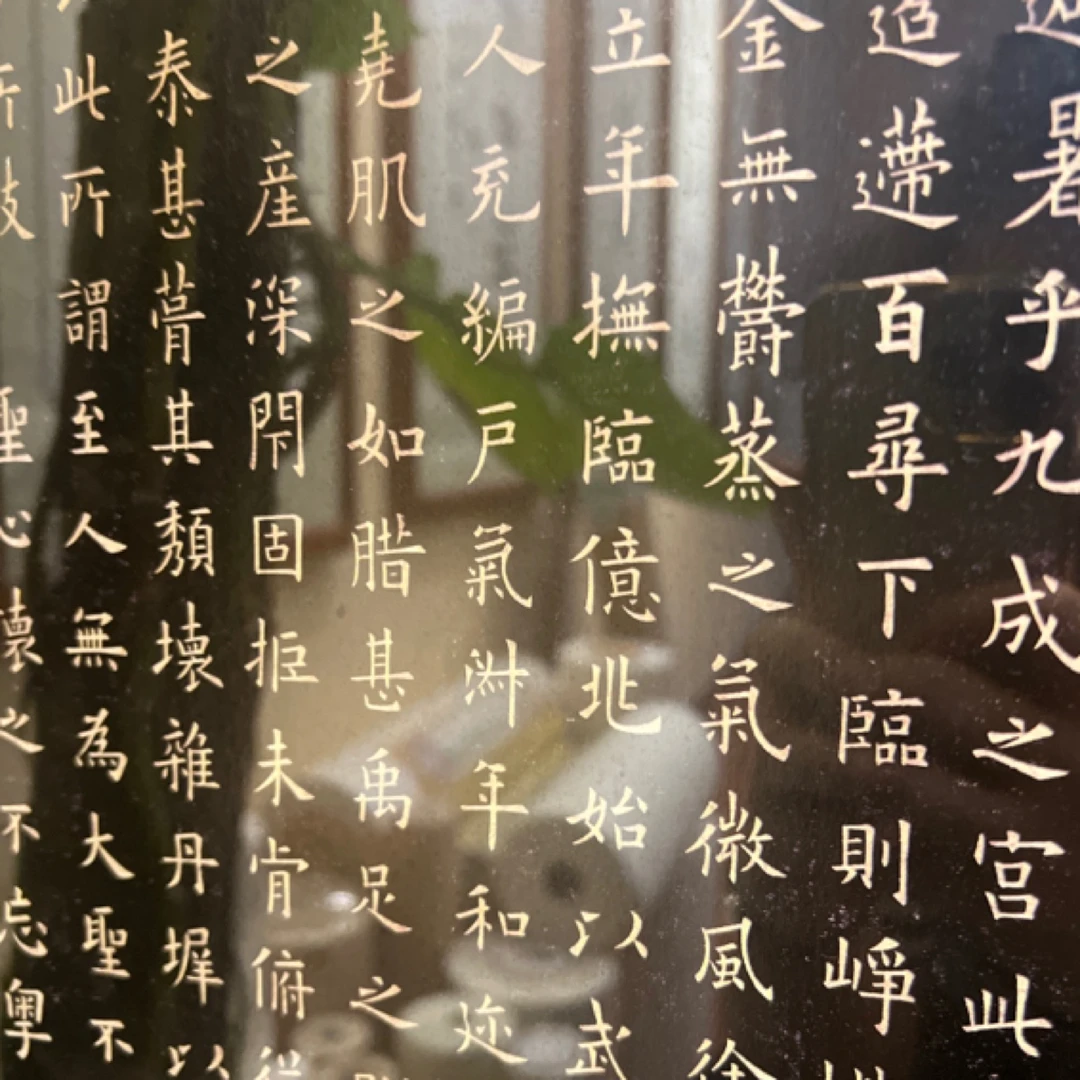 暑乎九成之宮此
迢遰百尋下臨則崢
金無鬱蒸之氣微風徐
立年撫臨億兆始以武
人充編戶氣淑年和迩
堯肌之如腊甚禹足之
之產深閇固拒未肯俯從
泰甚葺其頹壞雜丹墀以
此所謂至人無為大聖不
聖心懷之不忘粵